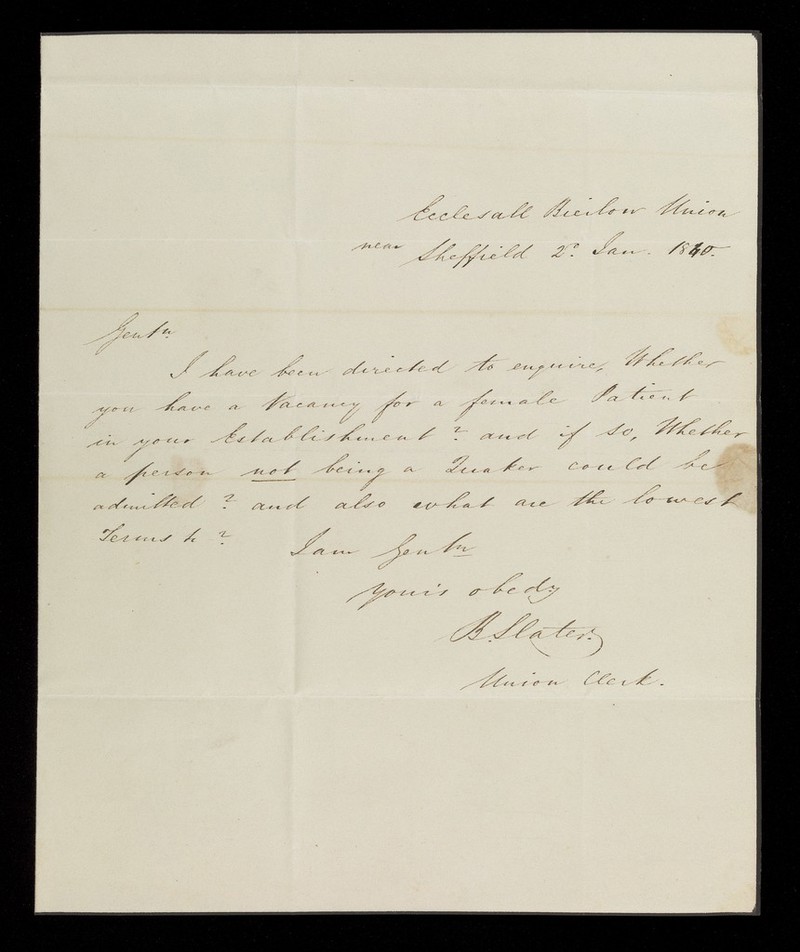 Ecclesall Bierlow Union
near Sheffield 2d. Jan. 1840.
Gentn.
I have been directed to enquire, Whether
you have a Vacancy for a female Patient
in your Establishment? and if so, Whether
a person not being a Quaker could be
admitted? and also what are the lowest
Terms &c?
I am Gentn
Yours obedy
B. Slater.
Union Clerk.